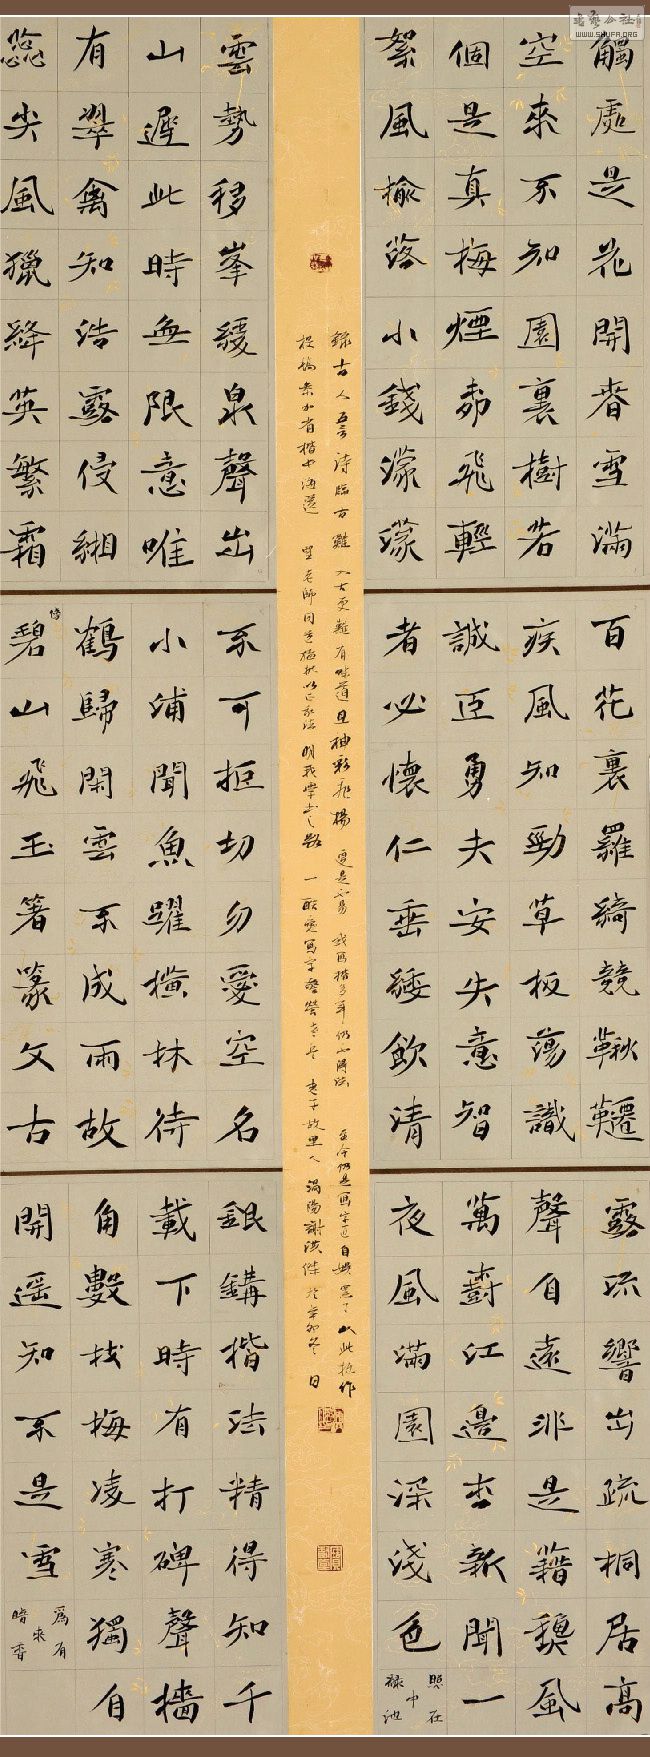 書藝公社
WWW.SHUFA.ORG
觸處是花開春雪滿
空來不知園裏樹若
個是真梅煙飛輕
絮風榆落小錢濛濛
百花裏羅綺競鞦韆
疾風知勁草板蕩識
誠臣勇夫安失意智
者必懷仁垂緌飲清
露流響出疏桐居高
聲自遠非是藉穐風
萬樹江邊杏新開一
夜風滿園深淺色
照在
中
池
錄古人五言詩臨古難入古更難有味道且抽還是不易我寫楷多年仍不得法至今仍是寫字匠自以此拙作
老師同道一敢愛寫字老子故里人渦陽謝洪傑於辛卯冬日
雲勢移峯緩泉聲出
山遲此時無限意唯
有翠禽知浩露侵緗
蕊尖風獵絳英繁霜
不可拒切勿愛空名
小浦聞魚躍橫林待
鶴歸閑雲不成雨故
傍
碧山飛玉箸篆文古
銀鉤楷法精得知千
載下時有打碑聲牆
角數枝梅凌寒獨自
開遥知不是雪
為有
來
暗香